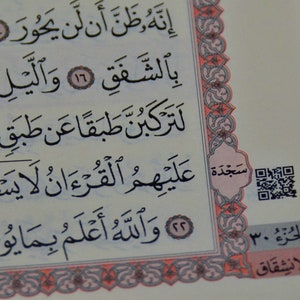 إِنَّهُۥ ظَنَّ أَن لَّن يَحُورَ
بِٱلشَّفَقِ ١٦ وَٱلَّيْلِ
لَتَرْكَبُنَّ طَبَقًا عَن طَبَقٍ
عَلَيْهِمُ ٱلْقُرْءَانُ لَا يَسْ
٢٢ وَٱللَّهُ أَعْلَمُ بِمَا يُو
سَجْدَة
الجُزْءُ ٣٠
الانشِقَاق